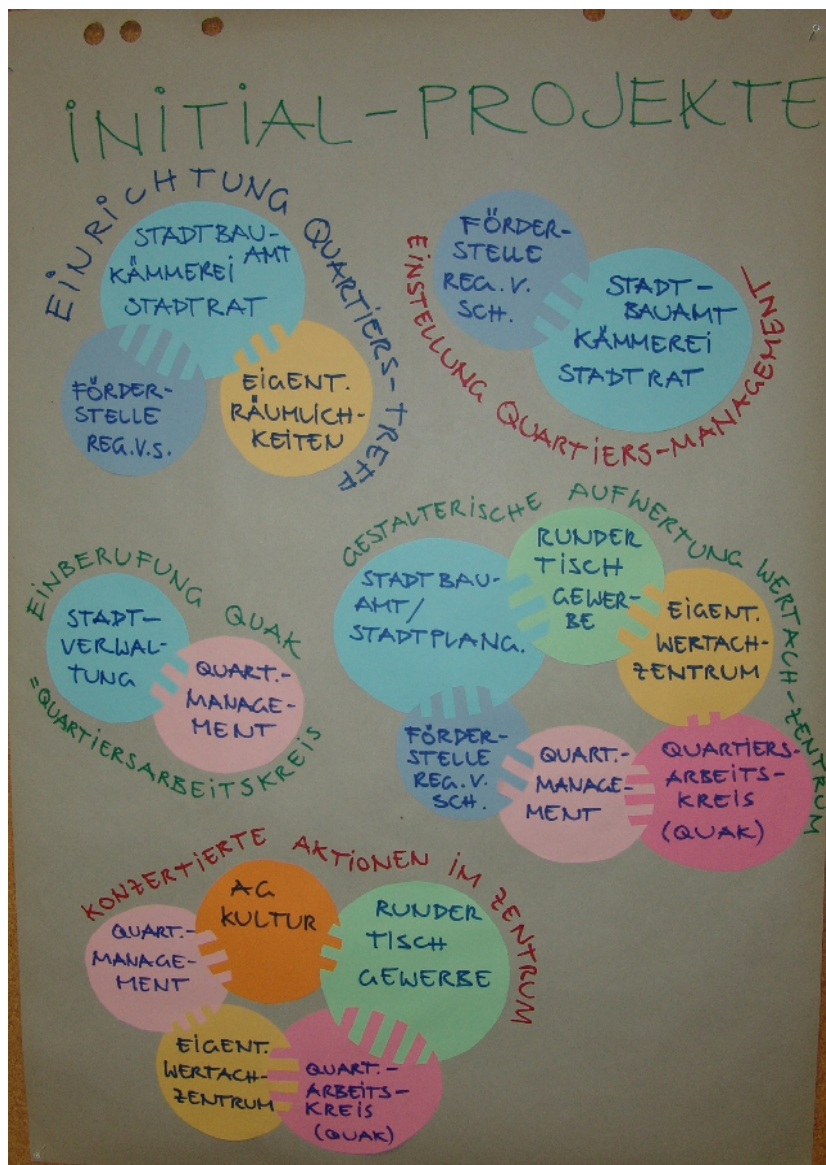 INITIAL-PROJEKTE
EINRICHTUNG QUARTIERS-TREFF
STADTBAU-
AMT
KÄMMEREI
STADTRAT
FÖRDER-
STELLE
REG.V.S.
EIGENT.
RÄUMLICH-
KEITEN
EINSTELLUNG QUARTIERS-MANAGEMENT
FÖRDER-
STELLE
REG. V.
SCH.
STADT-
BAUAMT
KÄMMEREI
STADTRAT
EINBERUFUNG QUAK
=QUARTIERSARBEITSKREIS
STADT-
VERWAL-
TUNG
QUART.-
MANAGE-
MENT
GESTALTERISCHE AUFWERTUNG WERTACH-ZENTRUM
STADTBAU-
AMT/
STADTPLANG.
RUNDER
TISCH
GEWER-
BE
EIGENT.
WERTACH-
ZENTRUM
FÖRDER-
STELLE
REG. V.
SCH.
QUART.-
MANAGE-
MENT
QUARTIERS-
ARBEITS-
KREIS
(QUAK)
KONZERTIERTE AKTIONEN IM ZENTRUM
QUART.-
MANAGE-
MENT
AG
KULTUR
RUNDER
TISCH
GEWERBE
EIGENT.
WERTACH-
ZENTRUM
QUART.-
ARBEITS-
KREIS
(QUAK)